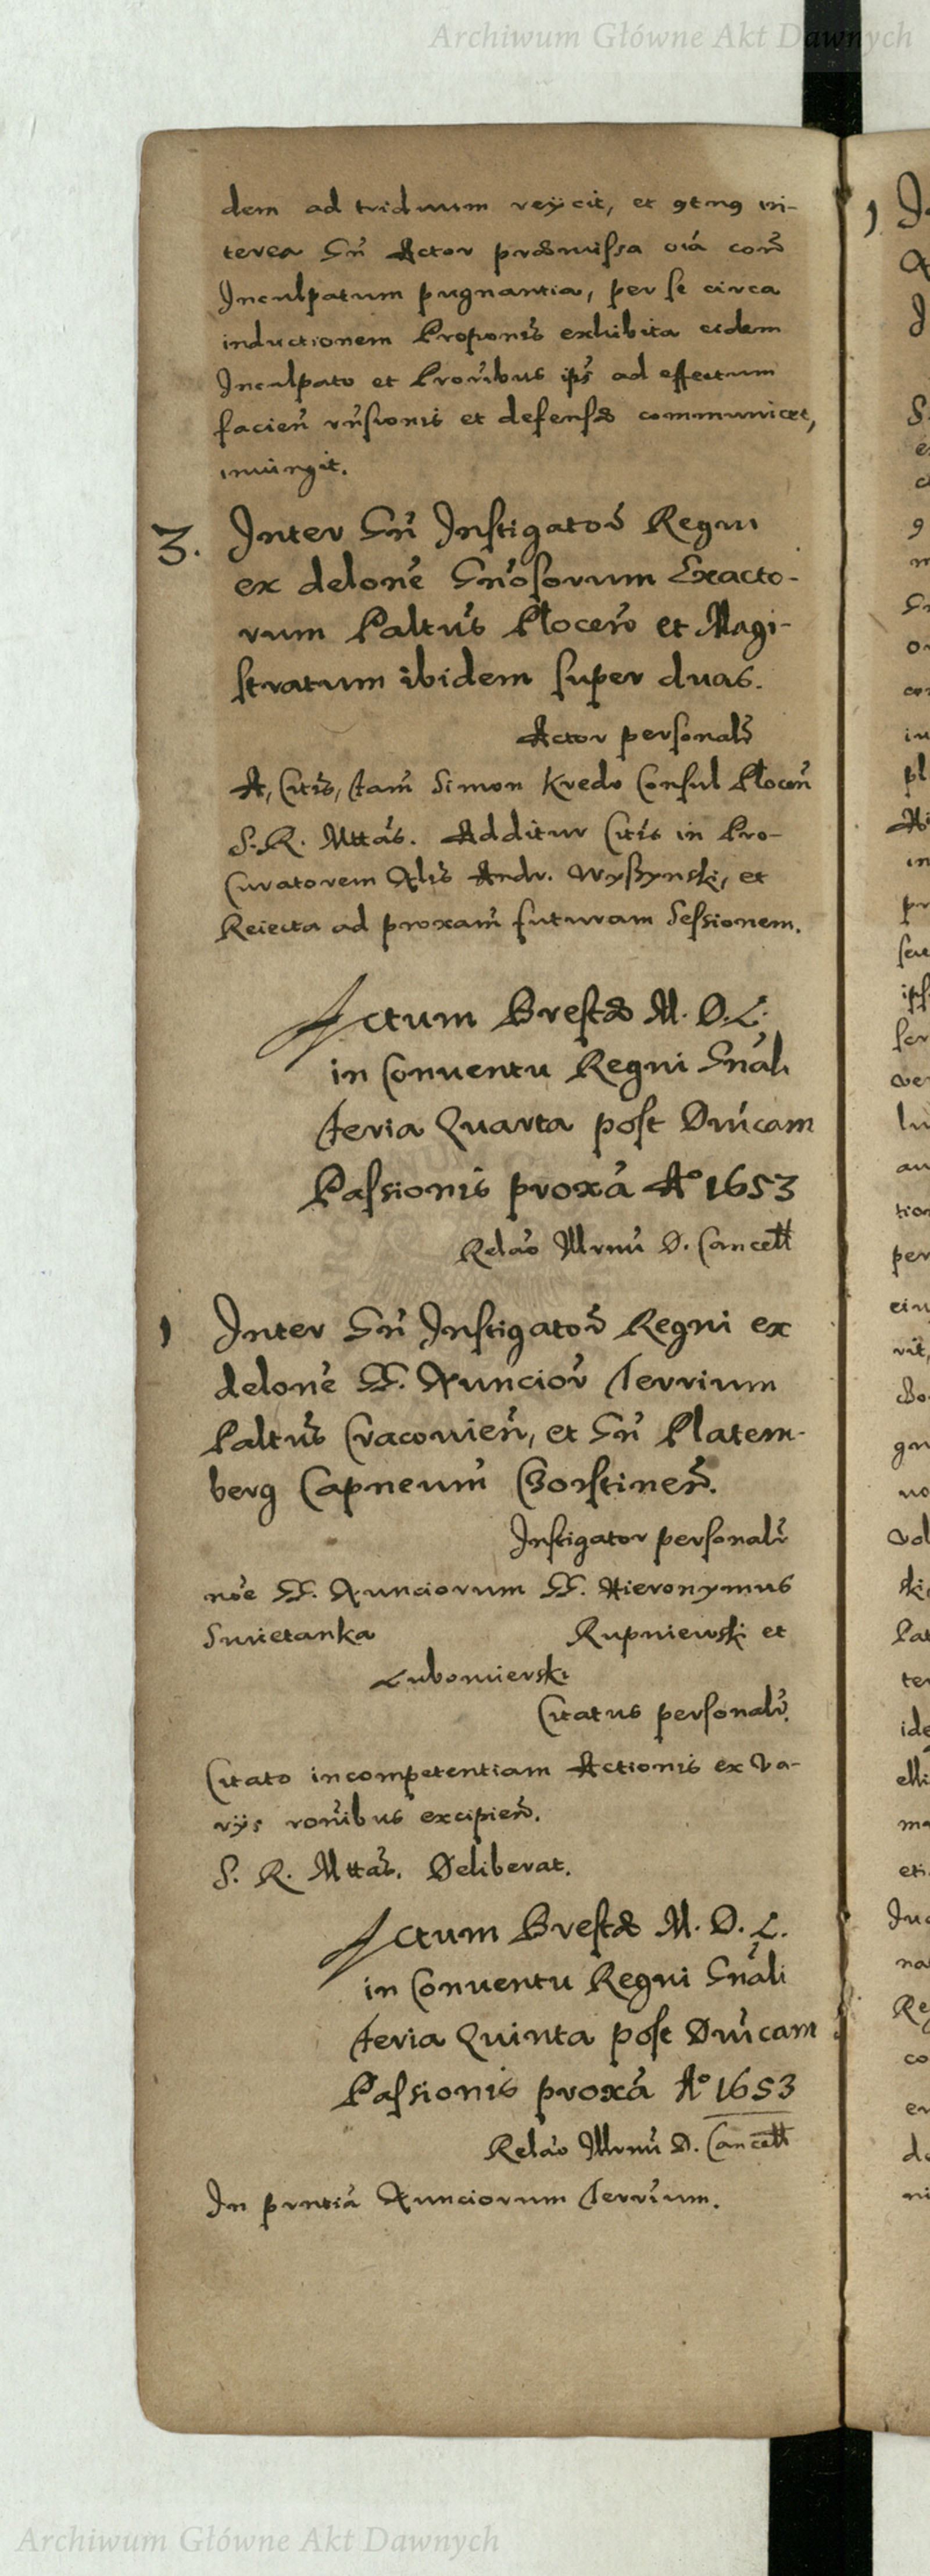 Archiwum Główne Akt Dawnych
dem ad triduum reÿcit, et
terea Gn̄ Actor præmissa oīa corā
Inculpatum pugnantia, per se circa
inductionem Proponīs exhibita eidem
Inculpato et Pronībus ips̄ ad effectum
facien̄ rn̄sionis et defensæ communicet,
iniungit.
3. Inter Gn̄ Instigator̄ Regni
ex delone̅ Gn̄osorum Exacto-
rum Paltus̄ Plocen̄ et Magi-
stratum ibidem super duas.
Actor personalr̄
A, Citīs, fam̄ Simon Kredo Consul Plocen̄
S. R. Mttas̄. Additur Citīs in Pro-
curatorem Nlis̄ Andr. Wyszynski, et
Reiecta ad proxam̄ futuram Sessionem.
Actum Brestæ M. D. L.
in Conventu Regni Gn̄ali
feria Quarta post Dn̄icam
Passionis proxā A° 1653
Relao̅ Illrmi̅ D. Cancell
1 Inter Gn̄ Instigator̄ Regni ex
delone̅ GG. Nuncior̄ Terrium
Paltus̄ Cracovien̄, et Gn̄ Platem-
berg Capneum̄ Borstinen̄.
Instigator personalr̄
noe̅ GG. Nunciorum GG. Hieronymus
Swietanka Rupniewski et
Lubomierski
Citatus personalr̄.
Citato incompetentiam Actionis ex Va-
rÿs ronībus excipien̄.
S. R. Mttas̄. Deliberat.
Actum Brestæ M. D. L.
in Conventu Regni Gn̄ali
feria Quinta post Dn̄icam
Passionis proxā A° 1653
Relao̅ Illrmi̅ D. Cancell
In pn̄tiā Nunciorum Terrium.
Archiwum Główne Akt Dawnych